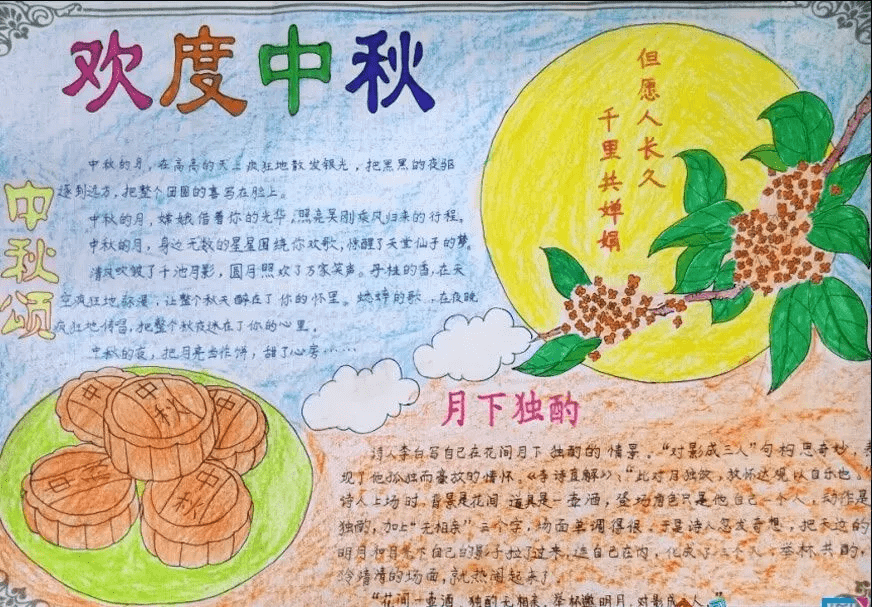 欢度中秋
但愿人长久
千里共婵娟
中秋颂
中秋的月，在高高的天上疯狂地散发银光，把黑黑的夜驱
逐到远方，把整个团圆的喜写在脸上。
中秋的月，嫦娥借着你的光华，照亮吴刚乘风归来的行程。
中秋的月，身边无数的星星围绕你欢歌，惊醒了天堂仙子的梦。
清风吹皱了千池月影，圆月照欢了万家笑声。丹桂的香，在天
空疯狂地弥漫，让整个秋天醉在了你的怀里。蟋蟀的歌，在夜晚
疯狂地传唱，把整个秋夜迷在了你的心里。
中秋的夜，把月亮当作饼，甜了心房……
中秋
中秋
中秋
中秋
月下独酌
诗人李白写自己在花间月下独酌的情景。“对影成三人”句构思奇妙，表
现了他孤独而豪放的情怀。《李诗直解》：“此对月独饮，放怀达观以自乐也。”
诗人上场时，背景是花间，道具是一壶酒，登场角色只是他自己一个人，动作是
独酌，加上“无相亲”三个字，场面单调得很。于是诗人忽发奇想，把天边的
明月和月光下自己的影子拉了过来，连自己在内，化成了三个人，举杯共酌，
冷清清的场面，就热闹起来了。
“花间一壶酒，独酌无相亲。举杯邀明月，对影成 人。”